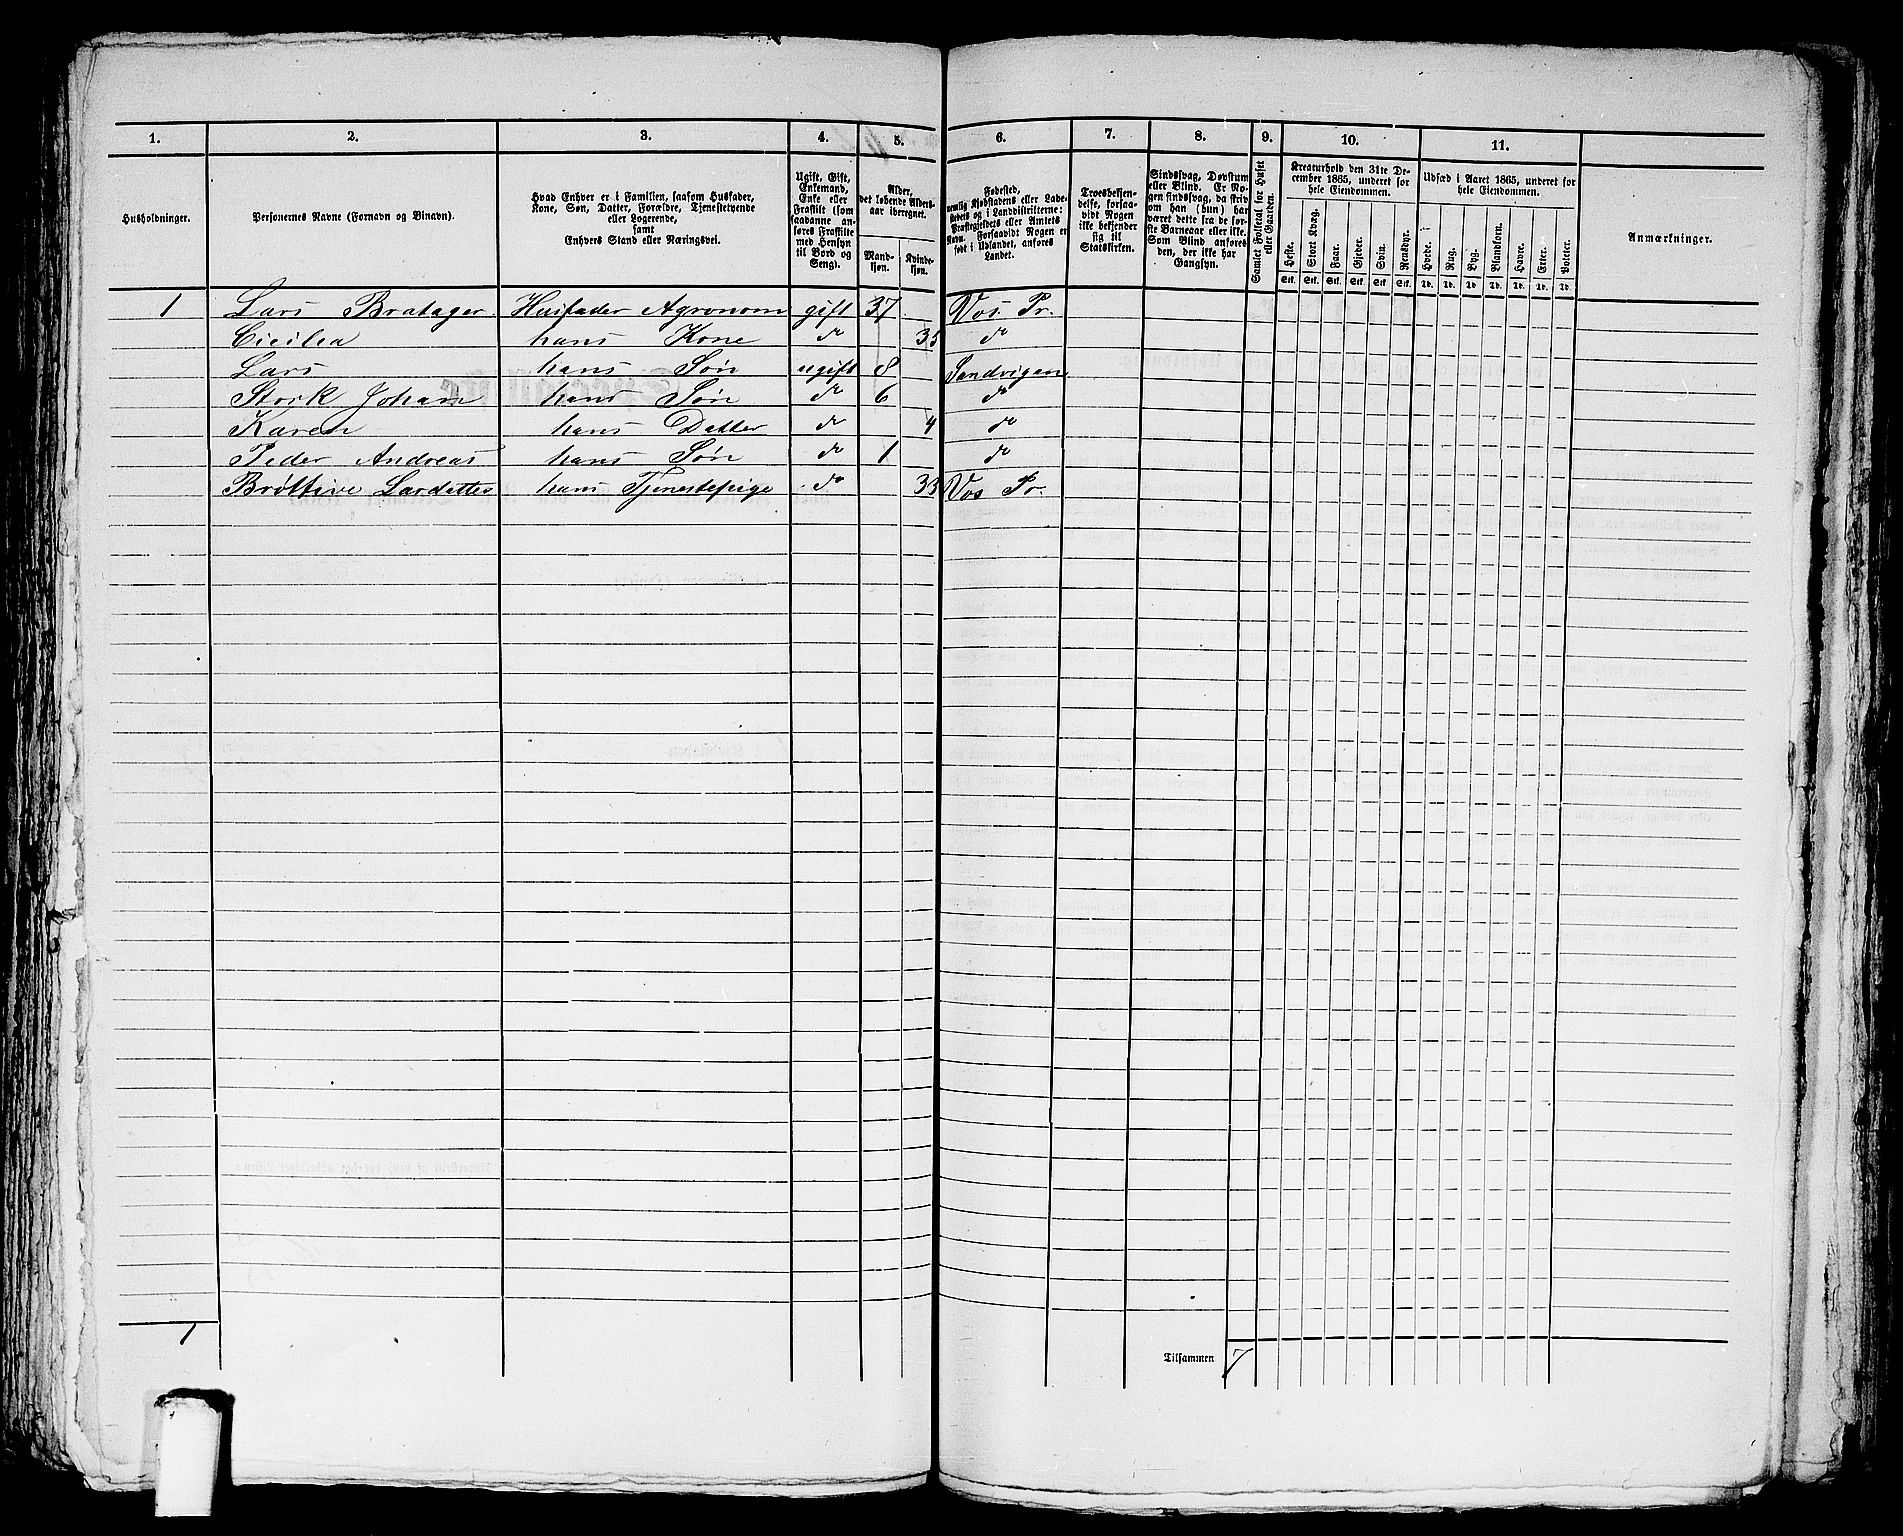 1. 2. 3. 4. 5. 6. 7. 8. 9. 10. 11.
Husholdninger.
Personernes Navne (Fornavn og Binavn).
Hvad Enhver er i Familien, saasom Husfader,
Kone, Søn, Datter, Forældre, Tjenestetyende
eller Logerende,
samt
Enhvers Stand eller Næringsvei.
Ugift, Gift,
Enkemand,
Enke eller
Fraskilt (som
saadanne an-
føres Fraskilte
med Hensyn
til Bord og
Seng).
Alder,
det løbende Alders-
aar iberegnet.
Mand-
kjøn.
Kvinde-
kjøn.
Fødested,
nemlig Kjøbstadens eller Lade-
stedets og i Landdistrikterne:
Præstegjeldets eller Amtets
Navn. Forsaavidt Nogen er
født i Udlandet, anføres
Landet.
Troesbekjen-
delse, forsaa-
vidt Nogen
ikke bekjender
sig til
Statskirken.
Sindssvag, Døvstum
eller Blind. Er No-
gen sindssvag, da skriv
om han (hun) har
været dette fra de før-
ste Barneaar eller ikke.
Som Blind anføres
den, der ikke har
Gangsyn.
Samlet Folketal for Huset
eller Gaarden.
Kreaturhold den 31te De-
cember 1865, underet for
hele Eiendommen.
Heste. Stort Kvæg. Faar. Gjeder. Svin. Rensdyr.
Stk. Stk. Stk. Stk. Stk. Stk.
Udsæd i Aaret 1865, underet for
hele Eiendommen.
Hvede. Rug. Byg. Blandkorn. Havre. Erter. Poteter.
Td. Td. Td. Td. Td. Td. Td.
Anmærkninger.
1 Lars Bratager Husfader Agronom gift 37 Vos Pr.
Cicilea hans Kone do 35 do
Lars hans Søn ugift 8 Sandvigen
Stork Johan hans Søn do 6 do
Karen hans Datter do 4 do
Peder Andreas hans Søn do 1 do
Brøttive Larsdatter hans Tjenestepige do 33 Vos Pr.
1
Tilsammen 7